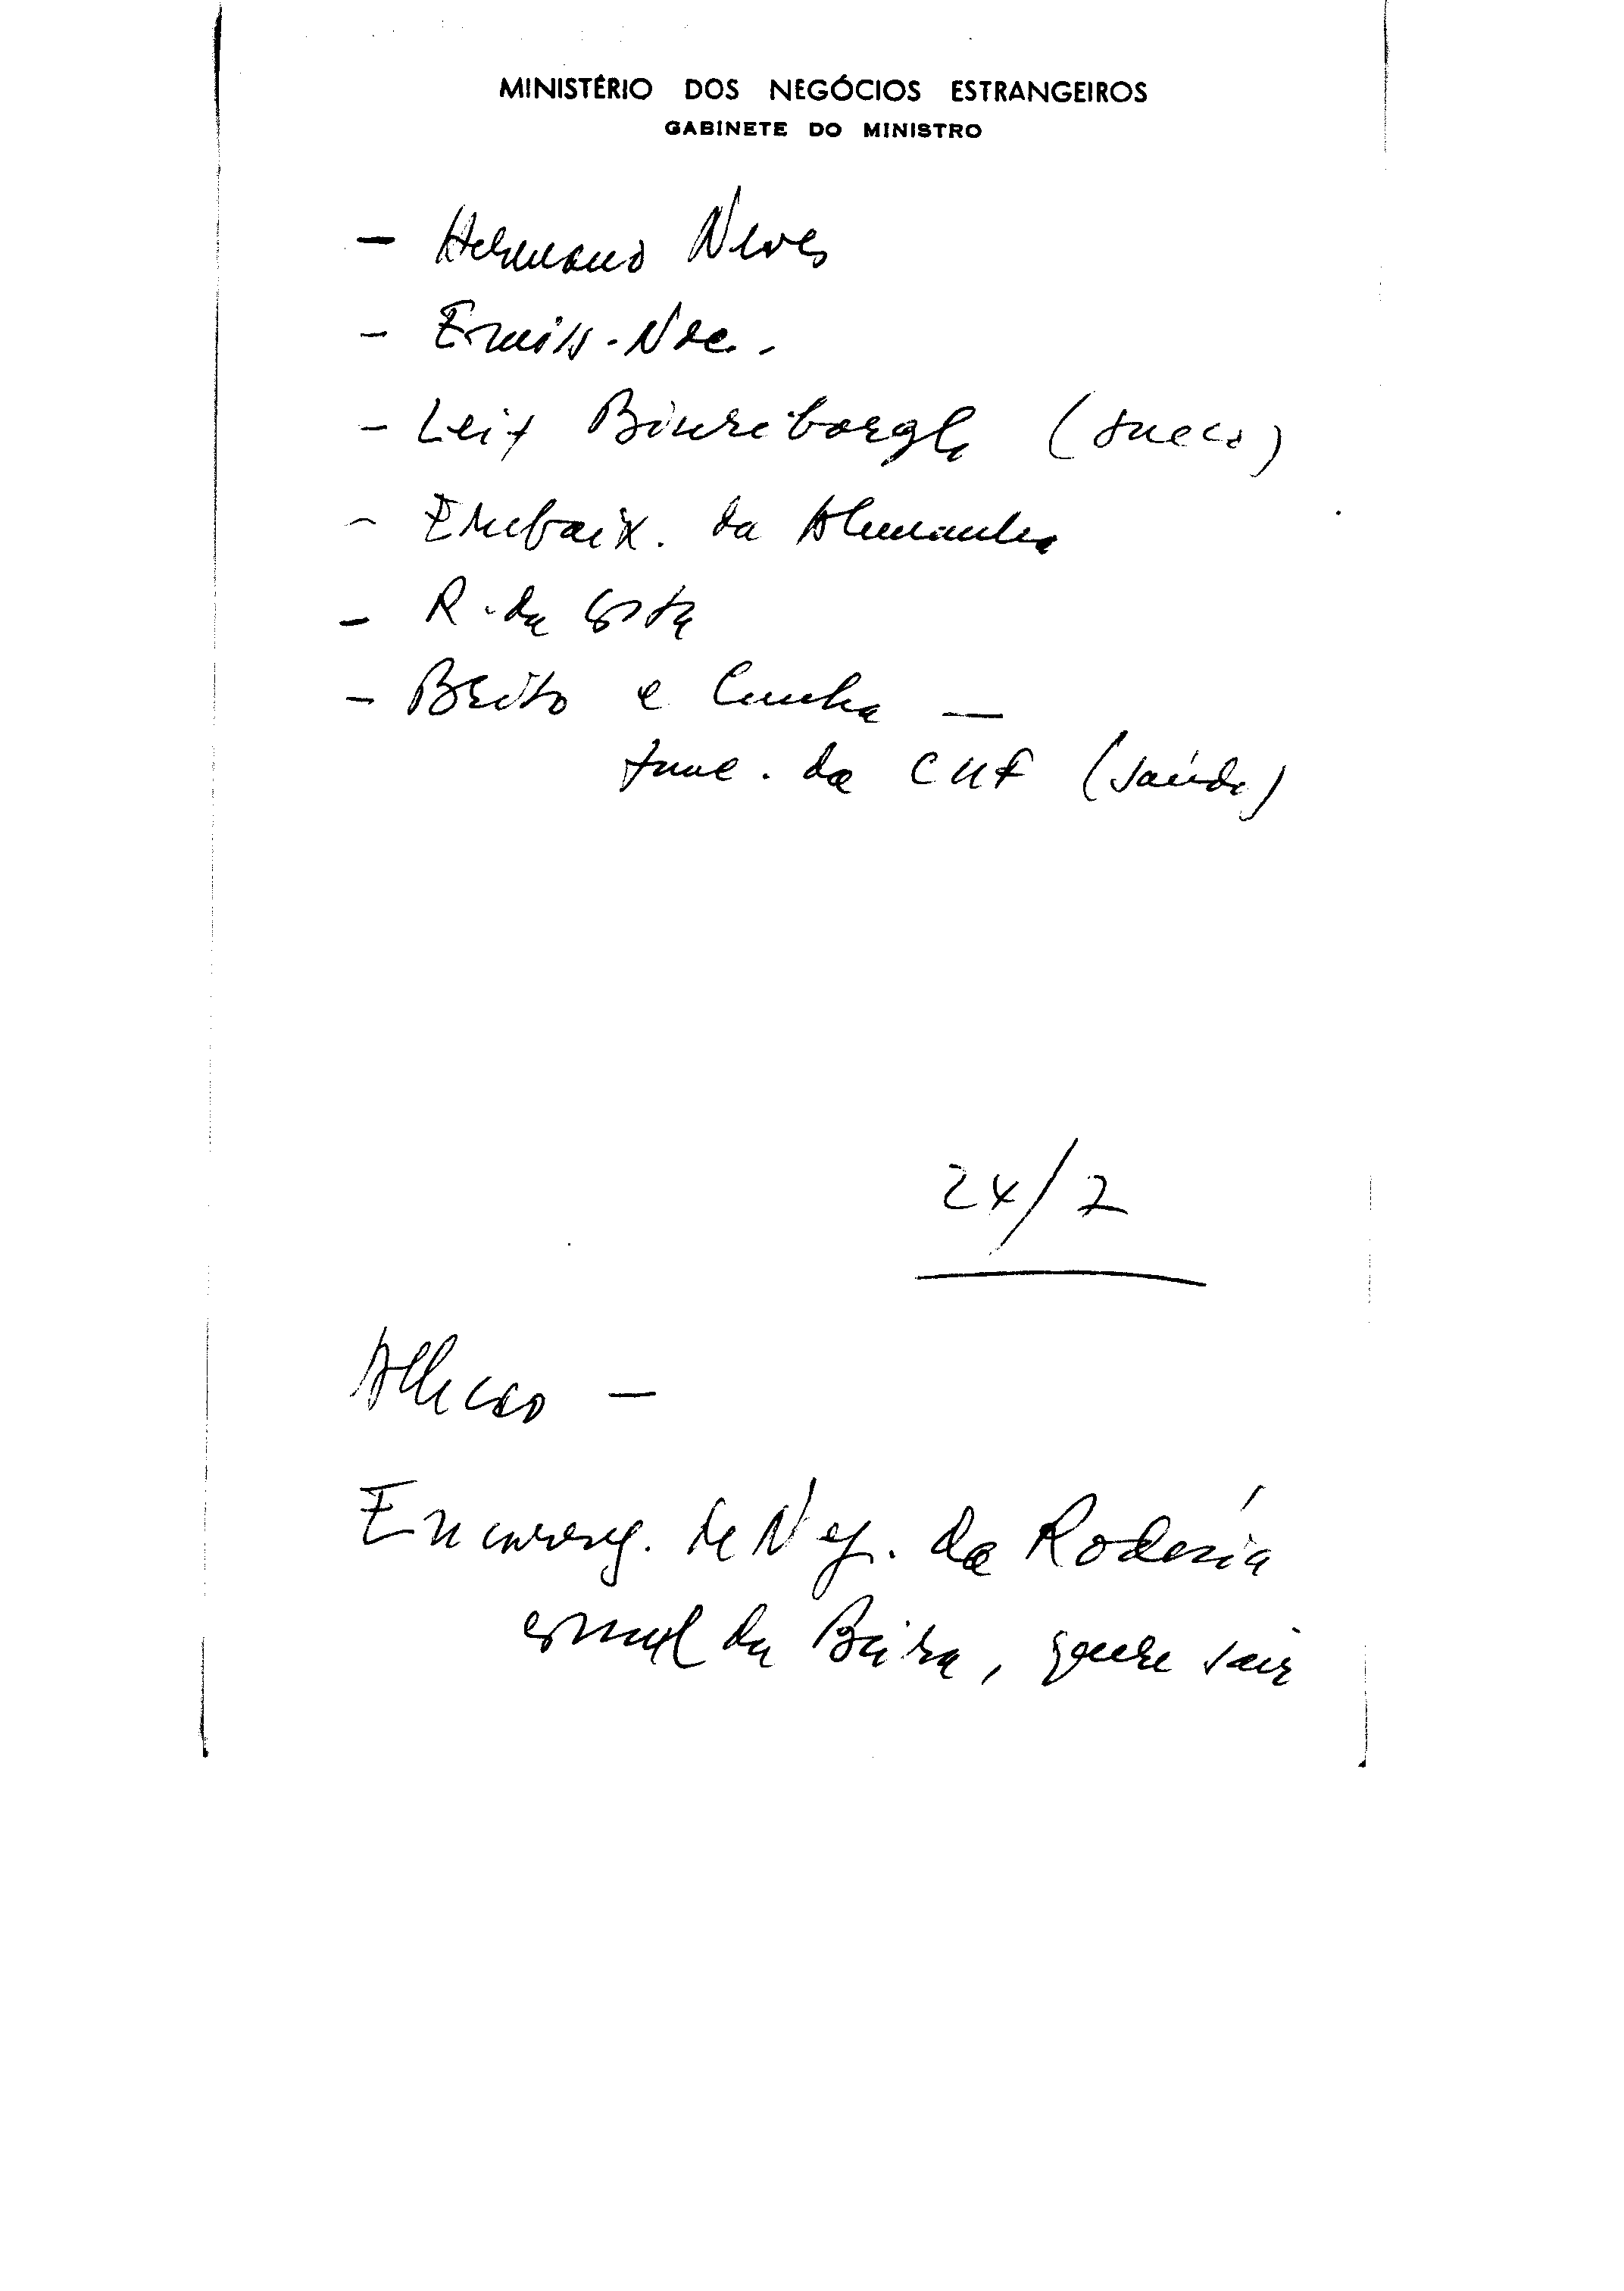 MINISTÉRIO DOS NEGÓCIOS ESTRANGEIROS
GABINETE DO MINISTRO
- Hermano Neves
- Emiss. Nac.
- Leif (sueco)
- Embaix. da Alemanha
- R. da Costa
- Brito e Cunha —
func. da CUF (saúde)
24/2
—
Encarreg. de Neg. da Rodésia
consul da Beira, quere sair